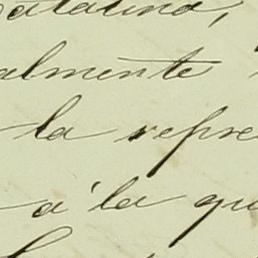 Catalina,
almente
la repre
a' la qu